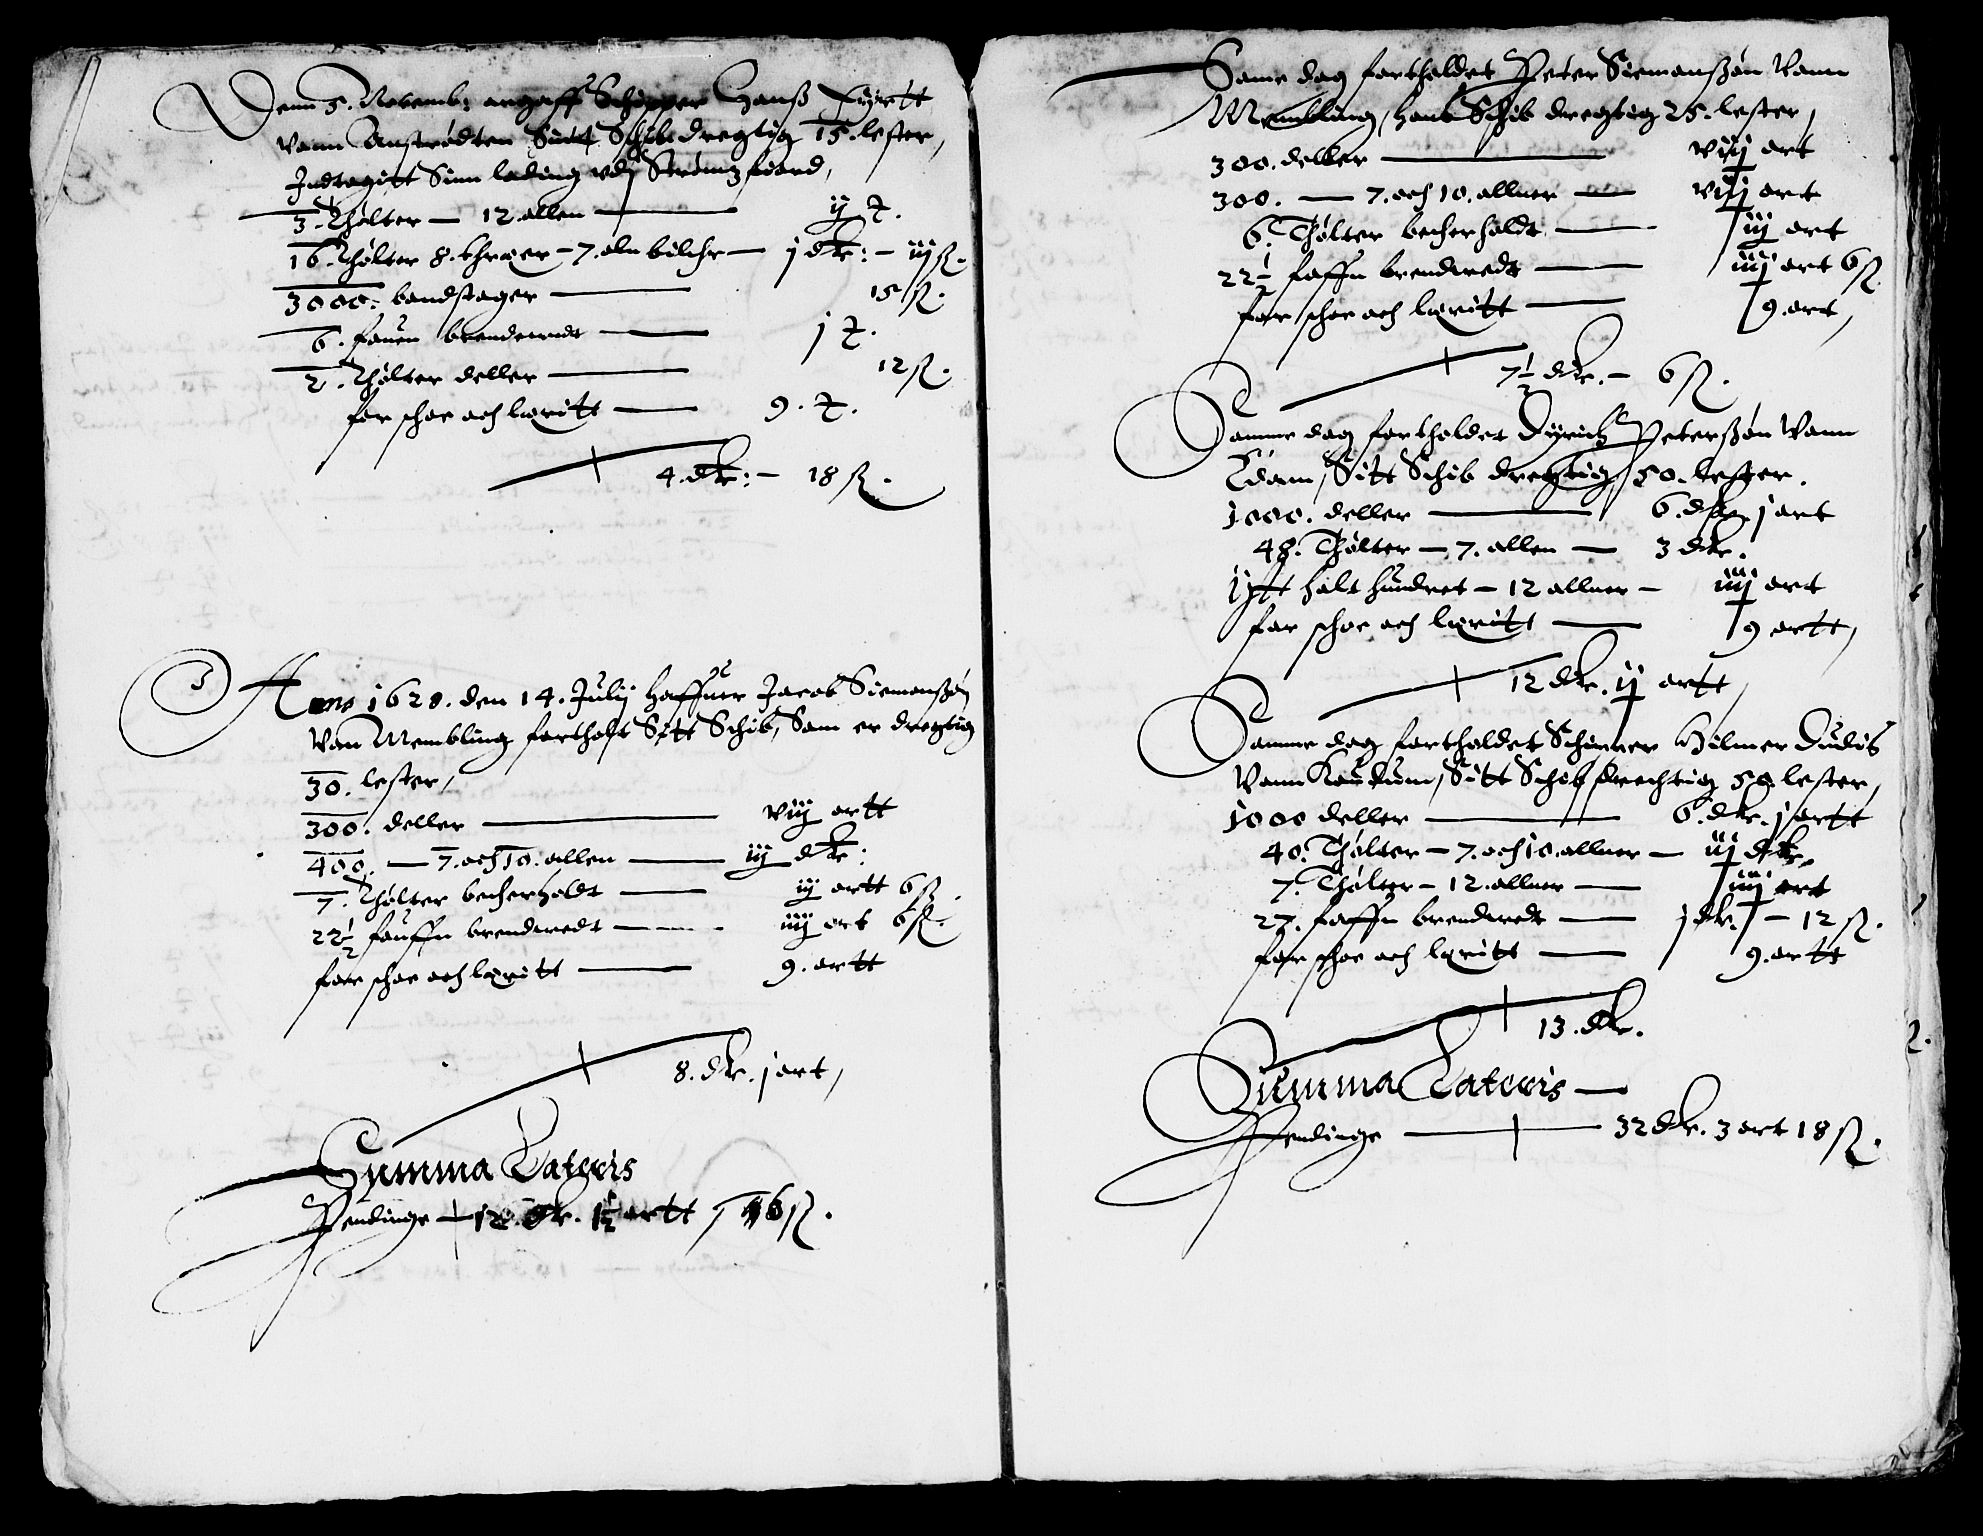 Denn 5. Novemb: angaff Schipper Hanß
vonn Sitt Schib dregtig 15. lester,
Indtagitt Sinn lading vdj Strømzfiord,
3. Thølter — 12 allen — ij t.
16. Thølter 8. — 7. aln — j dlr: — iij ß.
3000. bandstager — 15 ß.
6. fauen brendewedt — j t.
2. Thølter deller — 12 ß.
for schoe och loritt — 9. t.
4. dlr: — 18 ß.
Anno 1628. den 14. Julij haffuer Jacob Siemanßøn
Van Membling fortholt Sitt Schib, Som er dregtig
30. lester,
300. deller — viij ortt
400. — 7. och 10. allen — iij dlr:
7. Thølter becherholdt — iij ortt 6 ß.
22½ fauffn brendwedt — iiij ort 6 ß.
for schoe och loritt — 9. ortt
8. dlr. j ort,
Summa Lateris
Pendinge — 12. dlr. 1½ ortt 6 ß.
Same dag fortholdet Peter Siemanßøn Vann
Membling, hans Schib dregtig 25. lester,
300. deller — viij ort
300. — 7. och 10. allner — viij ort
6. Thølter becherholdt — iij ort
22½ faffn brendwedt — iiij ort 6 ß.
for schoe och loritt — 9. ort,
7½ dlr. — 6 ß.
Samme dag fortholdet Dyrich Peterßøn Vann
Edam, Sitt Schib dregtig 50. lester.
1000. deller — 6. dlr. j ort
48. Thølter — 7. allen — 3 dlr.
halt hundret — 12 allner — iiij ort
for schoe och loritt — 9 ortt,
12 dlr. ij ortt,
Samme dag fortholdet Schipper Hilmer Dudis
Vann Sitt Schib drechtig 50 lester,
1000 deller — 6. dlr. j ortt
40. Thølter — 7. och 10. allner — iij dlr.
7. Thølter — 12. allner — iiij ort
27. faffn brendwedt — j dlr. — 12 ß.
for schoe och loritt — 9. ortt
13. dlr.
Summa Lateris —
Pendinge — 32 dlr. 3 ort 18 ß.